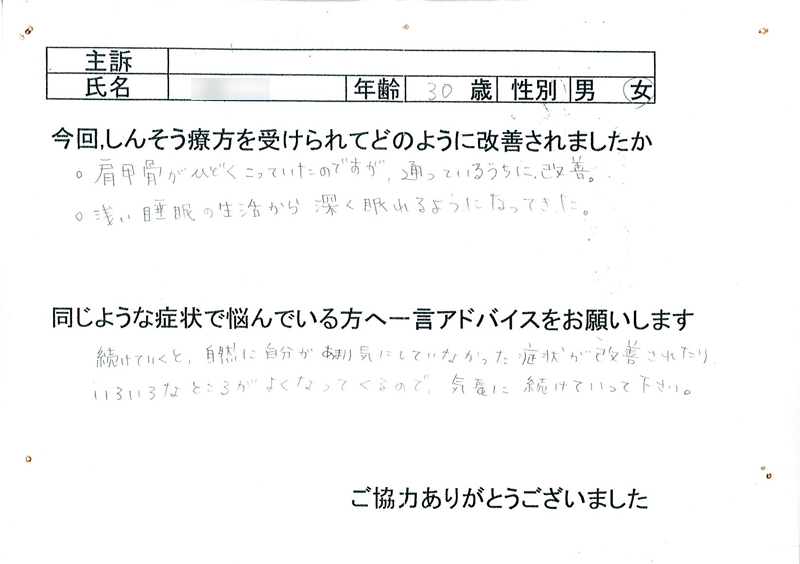 主訴
氏名 年齢 30 歳 性別 男 女
今回,しんそう療方を受けられてどのように改善されましたか
○ 肩甲骨がひどくこっていたのですが、通っているうちに改善。
○ 浅い睡眠の生活から 深く眠れるようになってきた。
同じような症状で悩んでいる方へ一言アドバイスをお願いします
続けていくと、自然に自分があまり気にしていなかった症状が改善されたり、
いろいろなところがよくなってくるので、気長に続けていって下さい。
ご協力ありがとうございました